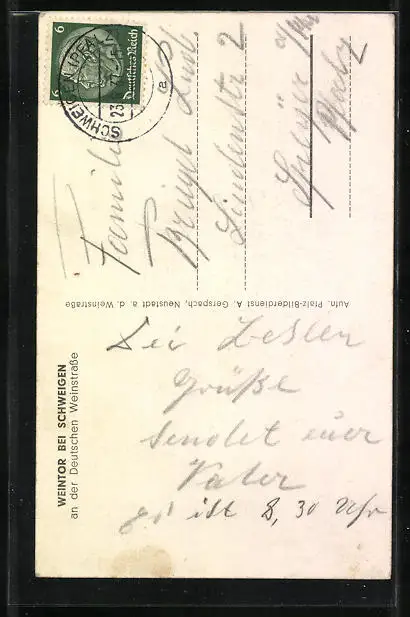 WEINTOR BEI SCHWEIGEN
an der Deutschen Weinstraße
Aufn. Pfalz-Bilderdienst A. Gerspach, Neustadt a. d. Weinstraße
6 6
Deutsches Reich
SCHWEIGEN (PFALZ)
23
a
Familie
Lindenstr 2
Speyer a/Rh
Pfalz
Grüße
sendet euer
Vater
es ist 8,30 Uhr